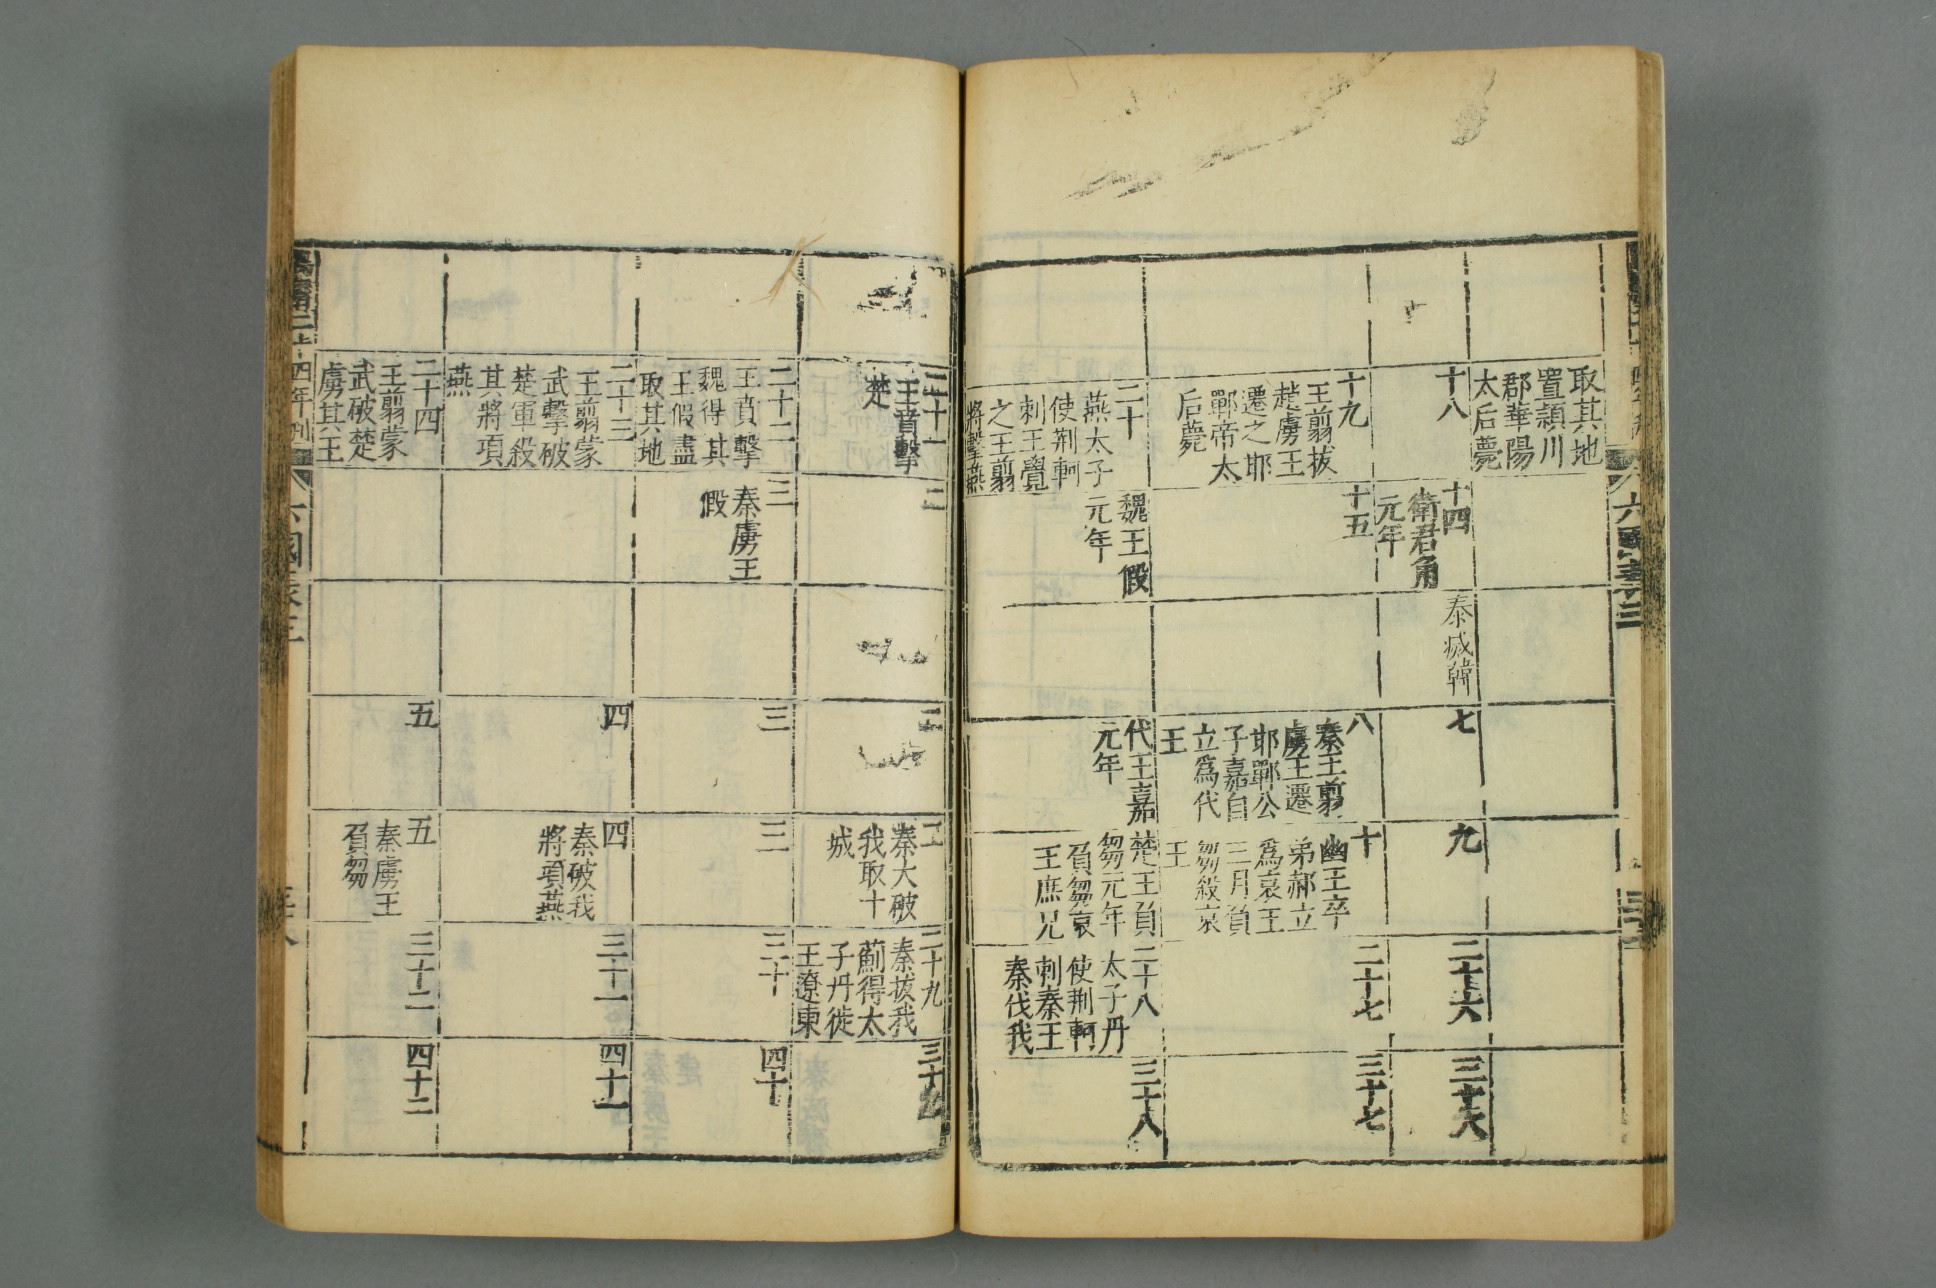 取其地
置潁川
郡華陽
太后薨
十八
十四
衛君角
元年
秦滅韓
七
九
二十六
三十六
十九
王翦拔
趙虜王
遷之邯
鄲帝太
后薨
十五
八
秦王翦
虜王遷
邯鄲公
子嘉自
立爲代
王
十
幽王卒
弟郝立
爲哀王
三月負
芻殺哀
王
二十七
三十七
二十
燕太子
使荆軻
刺王覺
之王翦
將擊燕
魏王假
元年
代王嘉
元年
楚王負
芻元年
負芻哀
王庶兄
二十八
太子丹
使荆軻
刺秦王
秦伐我
三十八
六國表三
二十一
王賁擊
楚
二
二
二
秦大破
我取十
城
二十九
秦拔我
薊得太
子丹徙
王遼東
二十二
王賁擊
魏得其
王假盡
取其地
三
秦虜王
假
三
三
三十
四十
二十三
王翦蒙
武擊破
楚軍殺
其將項
燕
四
四
秦破我
將項燕
三十一
四十一
二十四
王翦蒙
武破楚
虜其王
五
五
秦虜王
負芻
三十二
四十二
六國表三